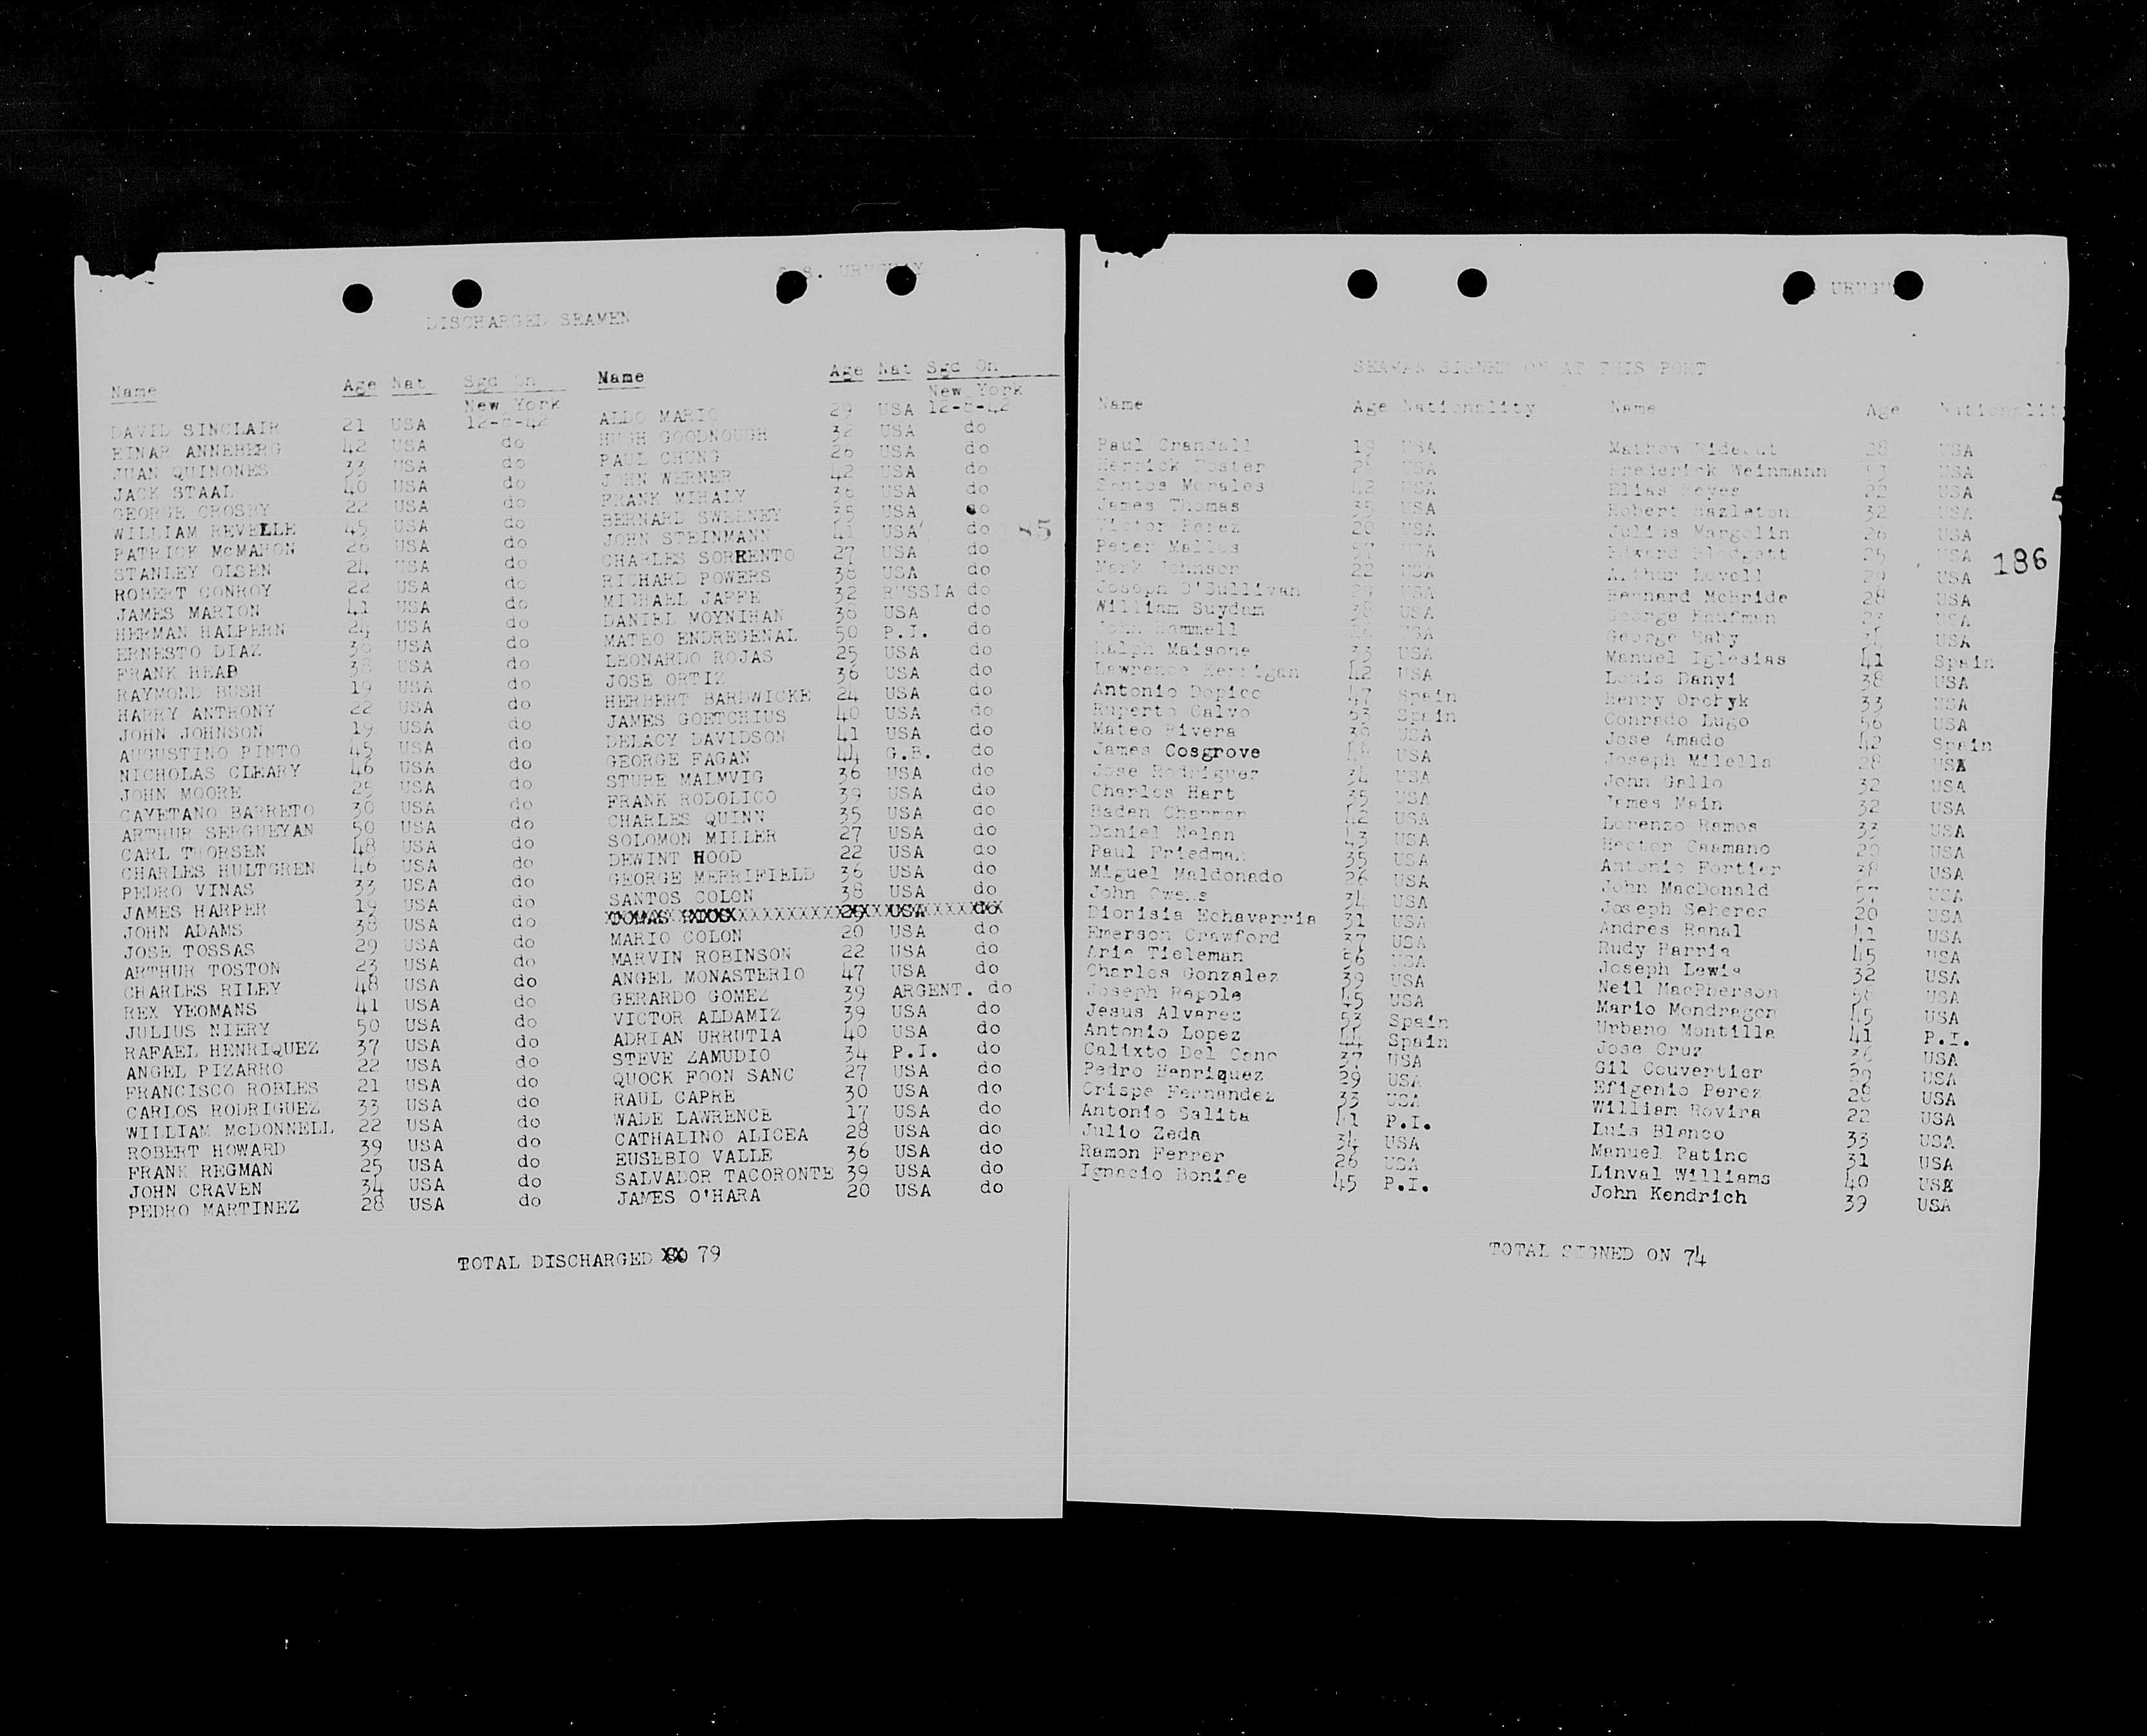 S.S. URUGUAY
DISCHARGED SEAMEN
Name Age Nat Sgd On Name Age Nat Sgd On
New York New York
DAVID SINCLAIR 21 USA 12-8-42 ALDO MARIO 29 USA 12-8-42
EINAR ANNEBERG 42 USA do HUGH GOODNOUGH 32 USA do
JUAN QUINONES 33 USA do PAUL CHUNG 26 USA do
JACK STAAL 40 USA do JOHN WERNER 42 USA do
GEORGE CROSBY 22 USA do FRANK MIHALY 36 USA do
WILLIAM REVELLE 45 USA do BERNARD SWEENEY 35 USA do
PATRICK McMAHON 26 USA do JOHN STEINMANN 41 USA do
STANLEY OLSEN 24 USA do CHARLES SORRENTO 27 USA do
ROBERT CONROY 22 USA do RICHARD POWERS 38 USA do
JAMES MARION 41 USA do MICHAEL JAFFE 32 RUSSIA do
HERMAN HALPERN 24 USA do DANIEL MOYNIHAN 38 USA do
ERNESTO DIAZ 38 USA do MATEO ENDREGENAL 50 P.I. do
FRANK HEAD 38 USA do LEONARDO ROJAS 25 USA do
RAYMOND BUSH 19 USA do JOSE ORTIZ 36 USA do
HARRY ANTHONY 22 USA do HERBERT BARDWICKE 24 USA do
JOHN JOHNSON 19 USA do JAMES GOETCHIUS 40 USA do
AUGUSTINO PINTO 45 USA do DELACY DAVIDSON 41 USA do
NICHOLAS CLEARY 46 USA do GEORGE FAGAN 44 G.B. do
JOHN MOORE 25 USA do STURE MALMVIG 36 USA do
CAYETANO BARRETO 30 USA do FRANK RODOLICO 39 USA do
ARTHUR SERGUEYAN 50 USA do CHARLES QUINN 35 USA do
CARL THORSEN 48 USA do SOLOMON MILLER 27 USA do
CHARLES HULTGREN 46 USA do DEWINT HOOD 22 USA do
PEDRO VINAS 33 USA do GEORGE MERRIFIELD 36 USA do
JAMES HARPER 19 USA do SANTOS COLON 38 USA do
JOHN ADAMS 38 USA do 29 USA do
JOSE TOSSAS 29 USA do MARIO COLON 20 USA do
ARTHUR TOSTON 23 USA do MARVIN ROBINSON 22 USA do
CHARLES RILEY 48 USA do ANGEL MONASTERIO 47 USA do
REX YEOMANS 41 USA do GERARDO GOMEZ 39 ARGENT. do
JULIUS NIERY 50 USA do VICTOR ALDAMIZ 39 USA do
RAFAEL HENRIQUEZ 37 USA do ADRIAN URRUTIA 40 USA do
ANGEL PIZARRO 22 USA do STEVE ZAMUDIO 34 P.I. do
FRANCISCO ROBLES 21 USA do QUOCK FOON SANG 27 USA do
CARLOS RODRIGUEZ 33 USA do RAUL CAPRE 30 USA do
WILLIAM McDONNELL 22 USA do WADE LAWRENCE 17 USA do
ROBERT HOWARD 39 USA do CATHALINO ALICEA 28 USA do
FRANK REGMAN 25 USA do EUSEBIO VALLE 36 USA do
JOHN CRAVEN 34 USA do SALVADOR TACORONTE 39 USA do
PEDRO MARTINEZ 28 USA do JAMES O'HARA 20 USA do
TOTAL DISCHARGED 80 79
URUGUAY
SEAMAN SIGNED ON AT THIS PORT
Name Age Nationality Name Age Nationality
Paul Crandall 19 USA Mathew Rideout 28 USA
Herrick Foster USA Frederick Weinmann USA
Santos Morales 42 USA Elias Reyes 22 USA
James Thomas 35 USA Robert Hazleton 32 USA
Victor Perez 20 USA Julius Margolin 26 USA
Peter USA Edward Blodgett 25 USA
186
Mark Johnson 22 USA Arthur Lovell USA
Joseph O'Sullivan USA Bernard McBride 28 USA
William Suydam 38 USA George Kaufman USA
John Hammell USA George Raby USA
Ralph Maisone 33 USA Manuel Iglesias 41 Spain
Lawrence Kerrigan 42 USA Louis Danyi 38 USA
Antonio Dopico 47 Spain Henry Orchyk 33 USA
Ruperto Calvo 63 Spain Conrado Lugo 56 USA
Mateo Rivera 39 USA Jose Amado 42 Spain
James Cosgrove 48 USA Joseph Milella 28 USA
Jose Rodriguez 34 USA John Gallo 32 USA
Charles Hart 35 USA James Main 32 USA
Baden Charman 42 USA Lorenzo Ramos 33 USA
Daniel Nolan 43 USA Hector Caamano USA
Paul Friedman 35 USA Antonio Fortier 38 USA
Miguel Maldonado 26 USA John MacDonald USA
John Owens 34 USA Joseph 20 USA
Dionisia Echavarria 31 USA Andres 41 USA
Emerson Crawford 37 USA Rudy Parria 45 USA
Arie Tieleman 56 USA Joseph Lewis 32 USA
Charles Gonzalez 39 USA Neil MacPherson 58 USA
Joseph Repole 45 USA Mario Mondragon 45 USA
Jesus Alvarez 53 Spain Urbano Montilla 41 P.I.
Antonio Lopez 44 Spain Jose Cruz 36 USA
Calixto Del Cano 37 USA Gil Couvertier 29 USA
Pedro Henriquez 29 USA Efigenio Perez 28 USA
Crispe Fernandez 33 USA William Rovira 22 USA
Antonio Salita 41 P.I. Luis Blanco 33 USA
Julio Zeda 34 USA Manuel Patino 31 USA
Ramon Ferrer 26 USA Linval Williams 40 USA
Ignacio Bonife 45 P.I. John Kendrich 39 USA
TOTAL SIGNED ON 74